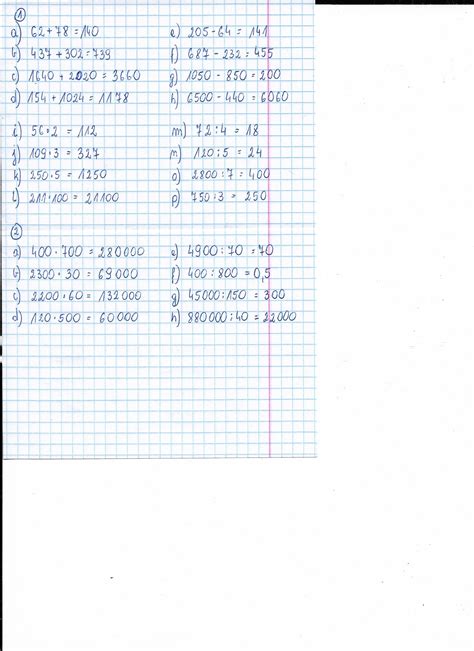 1
a) 62+78=140
b) 437+302=739
c) 1640+2020=3660
d) 154+1024=1178
e) 205-64=141
f) 687-232=455
g) 1050-850=200
h) 6500-440=6060
i) 56·2=112
j) 109·3=327
k) 250·5=1250
l) 211·100=21100
m) 72:4=18
n) 120:5=24
o) 2800:7=400
p) 750:3=250
2
a) 400·700=280000
b) 2300·30=69000
c) 2200·60=132000
d) 120·500=60000
e) 4900:70=70
f) 400:800=0,5
g) 45000:150=300
h) 880000:40=22000